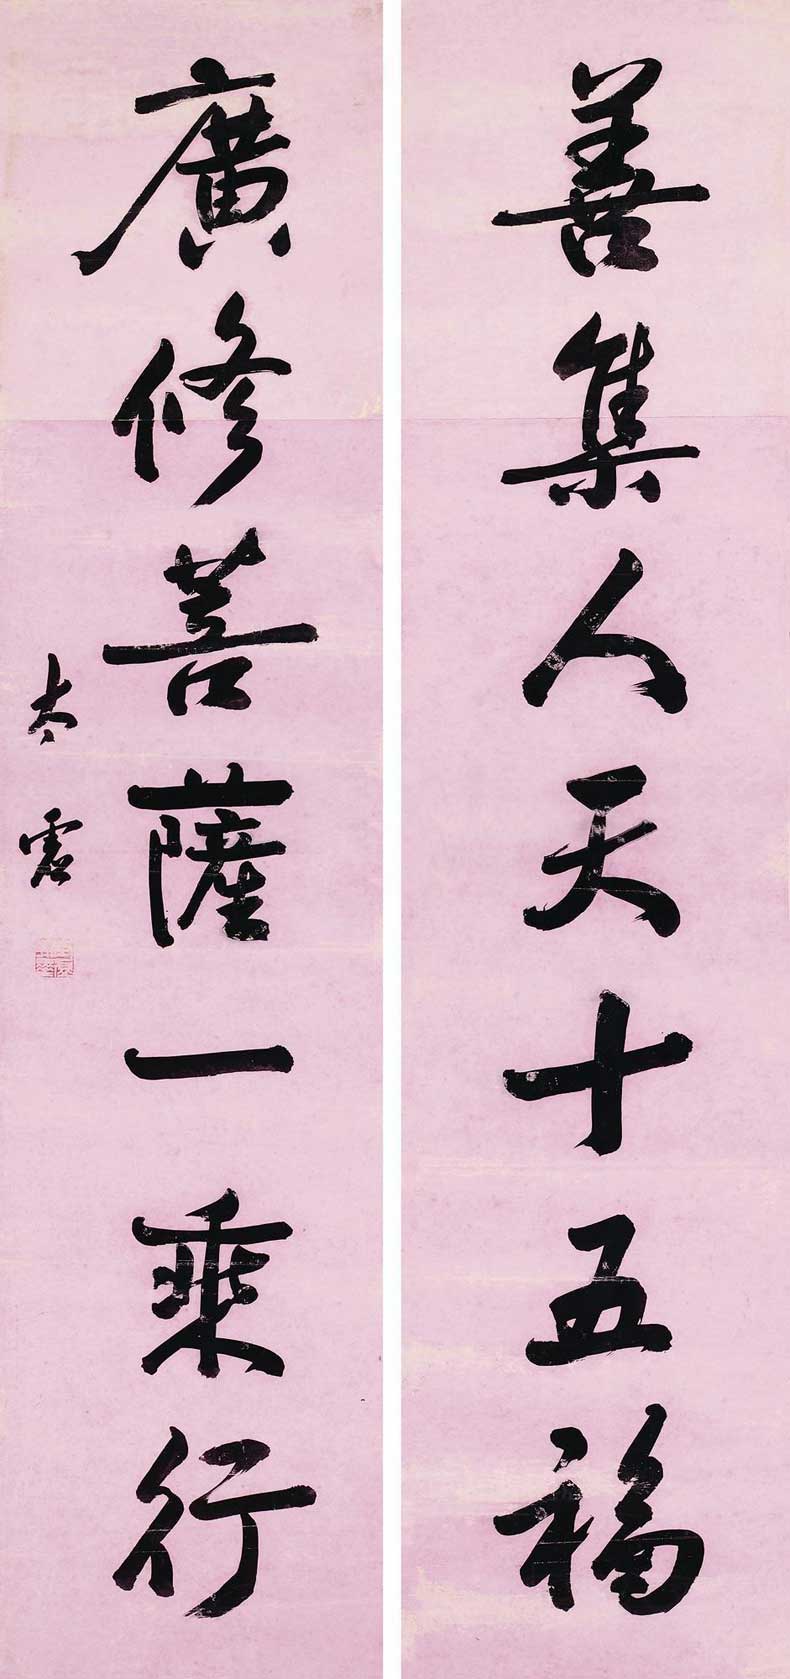 善集人天十五福
廣修菩薩一乘行
太虛